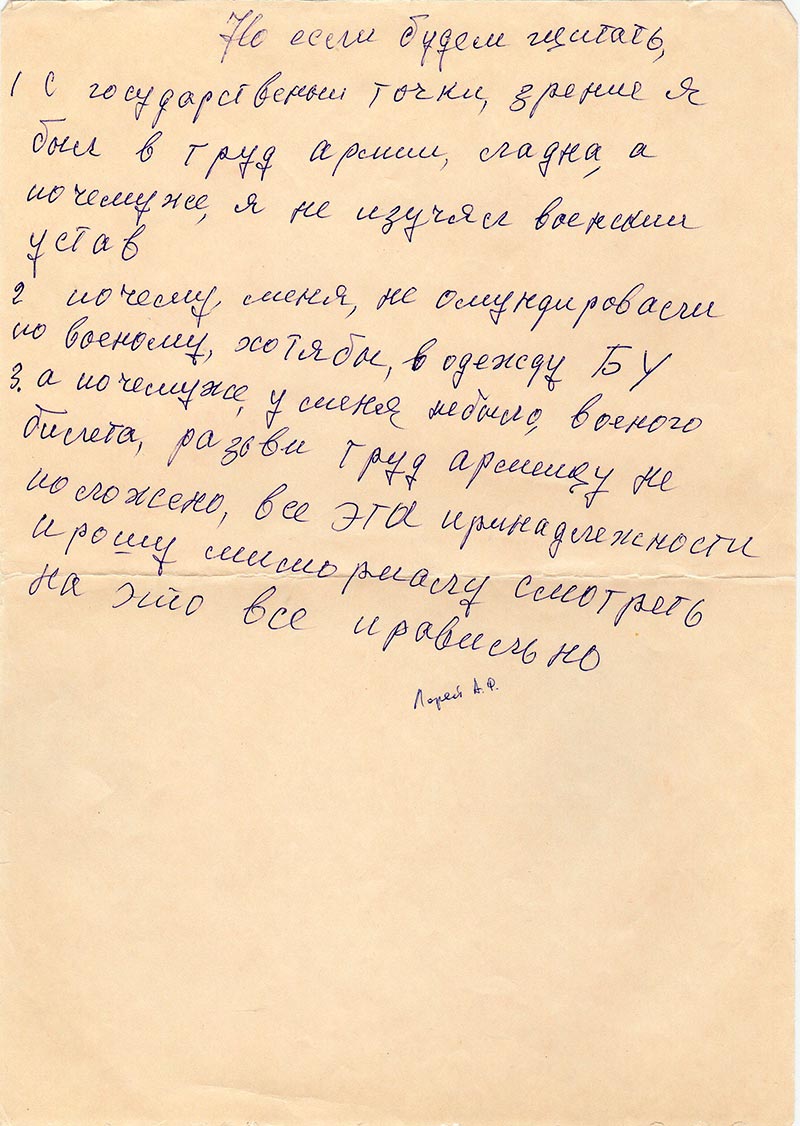 Но если будем щитать,
1 С государственыи точки, зрение я
был в труд армии, ладна, а
почемуже, я не изучял военскии
устав
2 почему, меня, не омундировали
по военому, хотябы, в одежду БУ
3. а почемуже, у меня небыло, военого
билета, разви труд армиицу не
положено, все эта принадлежности
прошу мимориалу смотреть
на это все правильно
Лорей А.Ф.